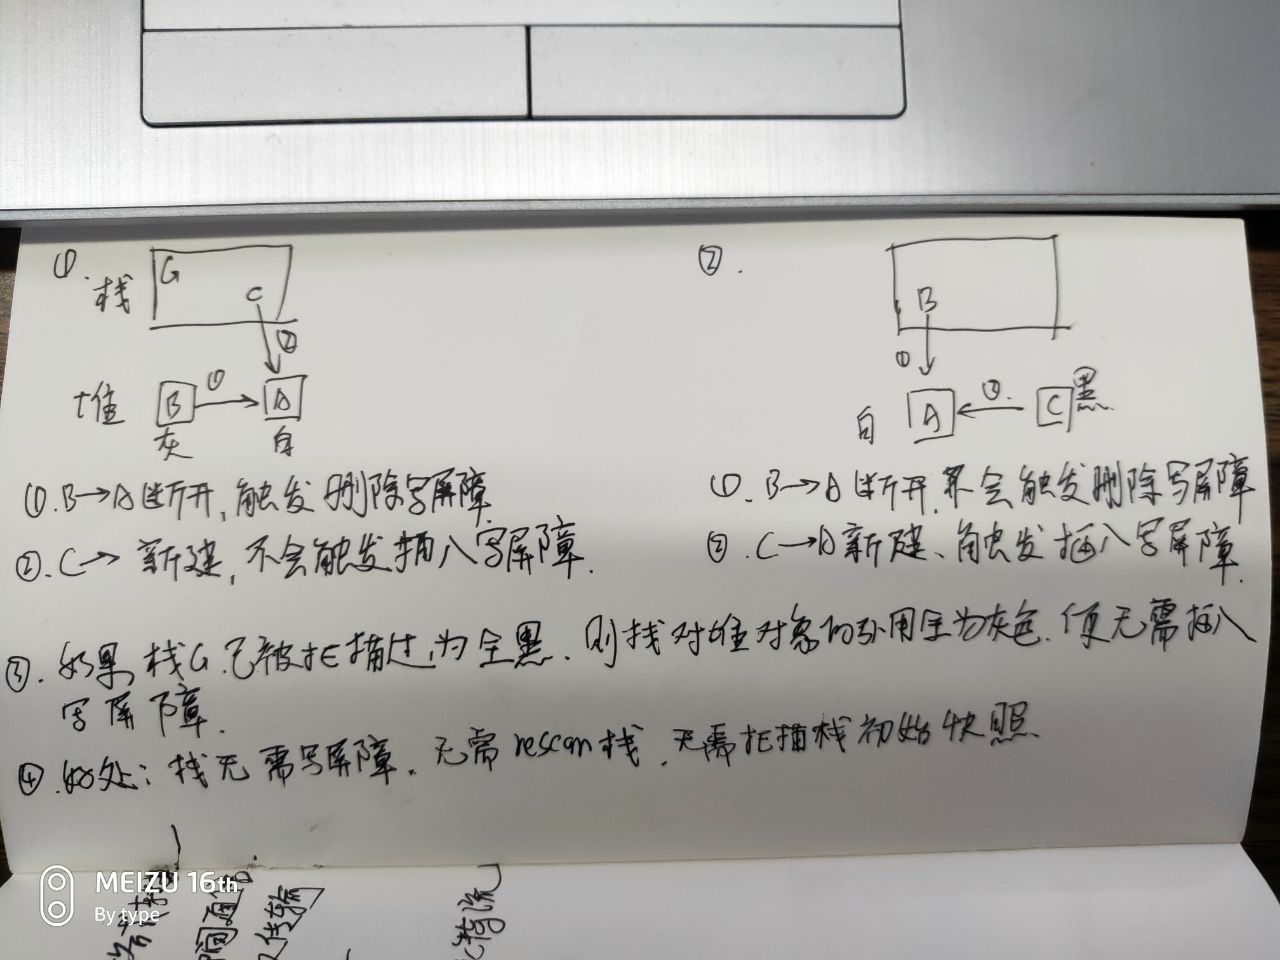 ①.
栈
G
C
②
堆
B
①
A
灰
白
①.B→A断开,触发删除写屏障
②.C→ 新建,不会触发插入写屏障.
②.
B
①
白
A
②.
C
黑
①.B→A断开.不会触发删除写屏障
②.C→A新建、触发插入写屏障.
③.如果栈G已被扫描过,为全黑.则栈对堆对象的引用全为灰色.便无需插入
写屏障.
④.好处:栈无需写屏障.无需rescan栈.无需扫描栈初始快照
MEIZU 16th
By type
传输